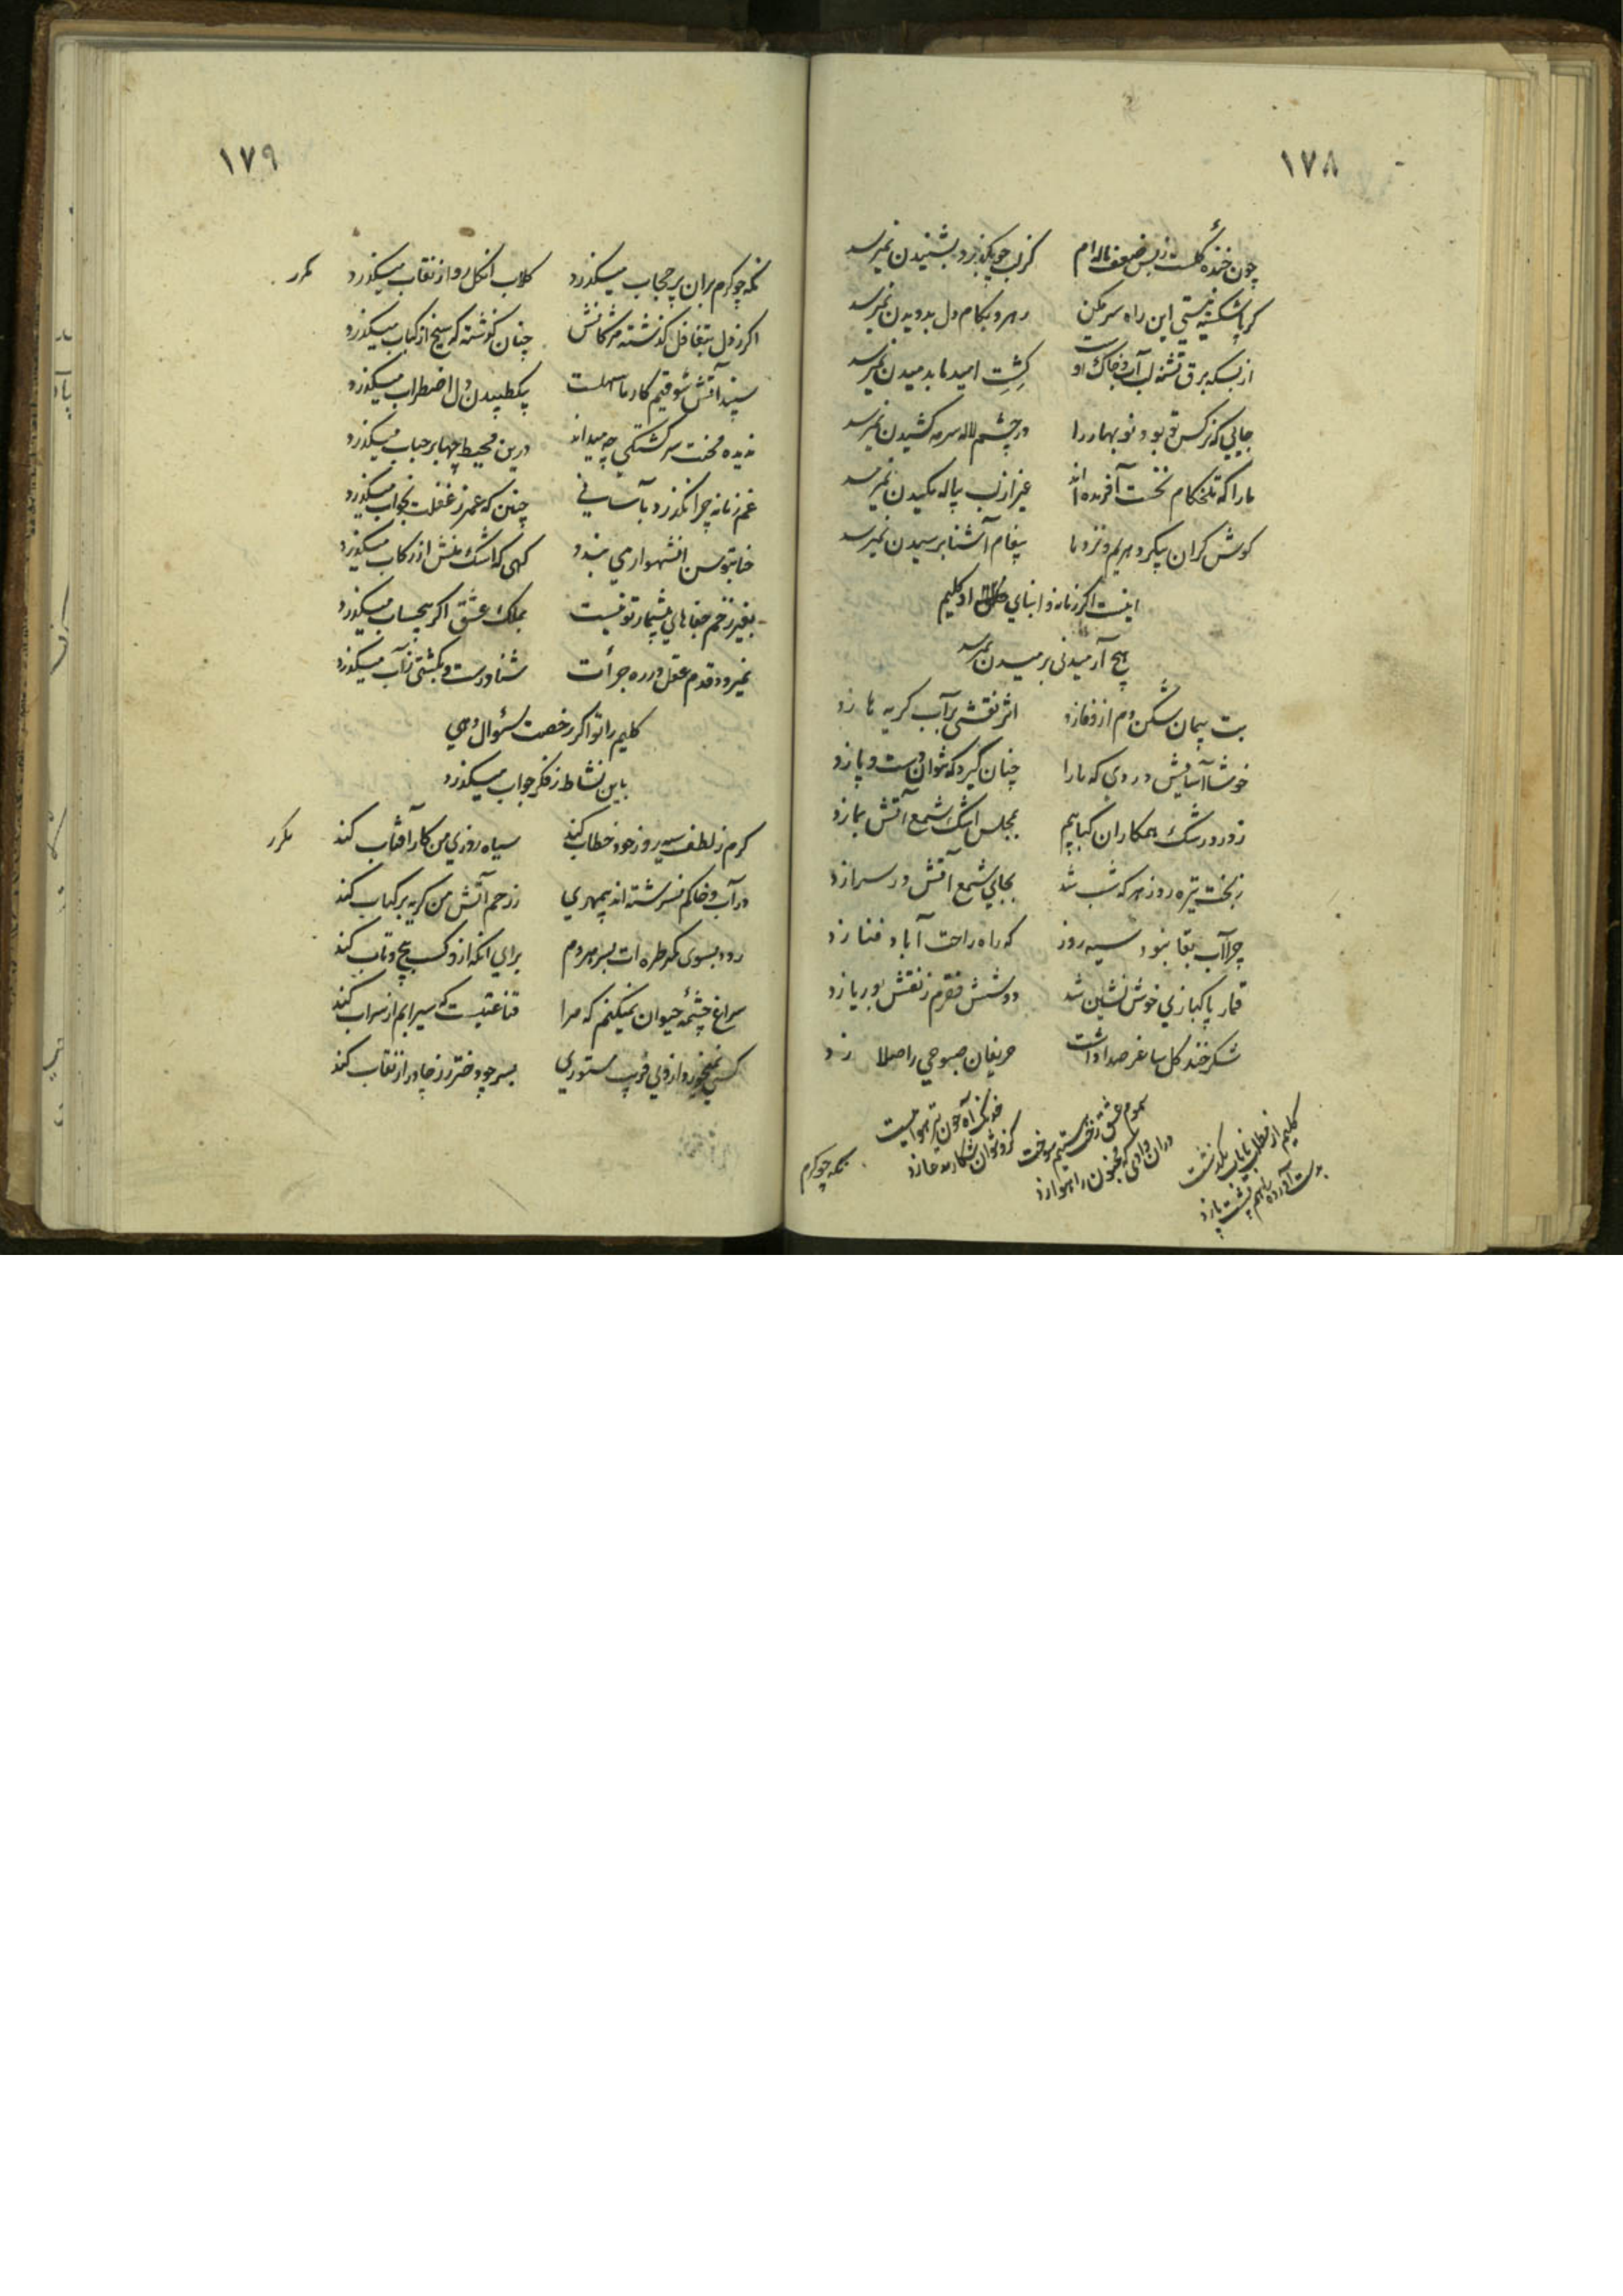 ١٧٨
چون خنده گلست ز بس ضعف ناله ام گر لب چو بگذرد بشنیدن نمیرسد
گر پا شکسته نیستی این راه سر مکن رهرو بکام دل بدویدن نمیرسد
از بسکه برق تشنه لب آب و خاک اوست کِشتِ امید ما بدمیدن نمیرسد
جایی که نرکس تو بود نوبهار را در چشم لاله سرمه کشیدن نمیرسد
ما را که تلخکام نخست آفریده اند غیر از لب پیاله مکیدن نمیرسد
کوش کران بگیر و بریم و نزد ما پیغام آشنا برسیدن نمیرسد
اینست اکر زمانه و ابنای او کلیم
هیچ آرمیدنی برمیدن نمیرسد
بت پیمان شکن دم از وفا زد اثر نقشی بر آب کریه ما زد
خوشا آسایش دردی که ما را چنان گیرد که نتوان دست و پا زد
ز درد رشک همکاران کبابیم بمجلس اشک شمع آتش بما زد
ز بخت تیره روز هر که شب شد بجای شمع آتش در سرا زد
چرا آب بقا نبود سیه روز که راه راحت آباد فنا زد
قمار پاکبازی خوش نشین شد دو شش فقرم ز نقش بوریا زد
شکرخند کل ساغر صدا داشت حریفان صبوحی را صلا زد
کلیم از مطلب نایاب بگذشت
بدست آورده را هم پشت پا زد
سموم عشق رخت هستیم سوخت
دران وادی که مجنون را هوا زد
خدنگ آه چون تیر هواییست
کزو نتوان شکار مدعا زد
نگه چو گرم
١٧٩
نگه چو کرم بران پر حجاب میکذرد کلاب انکل رو از نقاب میکذرد مکرر
اکر ز دل بتغافل کذشته مژکانش چنان کذشته که سیخ از کباب میکذرد
سپند آتش شوقیم کار ما سهلست بیک طپیدن دل اضطراب میکذرد
ندیده محنت سرکشتکی چه میداند درین محیط چها بر حباب میکذرد
غم زمانه چرا نکذرد بآسانی چنین که عمر ز غفلت بخواب میکذرد
حنا بتوسن انشهسوار می بندد کهی که اشک منش از رکاب میکذرد
بغیر زخم جفاهای بیشمار تو نیست بملک عشق اکر بیحساب میکذرد
نمیرود قدم عقل در ره جرأت شناورست و بکشتی ز آب میکذرد
کلیم را تو اکر رخصت سئوال دهی
باین نشاط ز فکر جواب میکذرد
کرم ز لطف سیه روز خود خطاب کند سیاه روزی من کار آفتاب کند مکرر
در آب و خاکم نسرشته اند بیمهری ز رحم آتش من کریه بر کباب کند
رود بسوی کمر طره ات بسر هر دم برای انکه ازو کسب پیچ و تاب کند
سراغ چشمهٔ حیوان نمیکنم که مرا قناعتیست که سیرابم از سراب کند
کسی نمیخورد از وی فریب مستوری بسر چو دختر رز چادر از نقاب کند